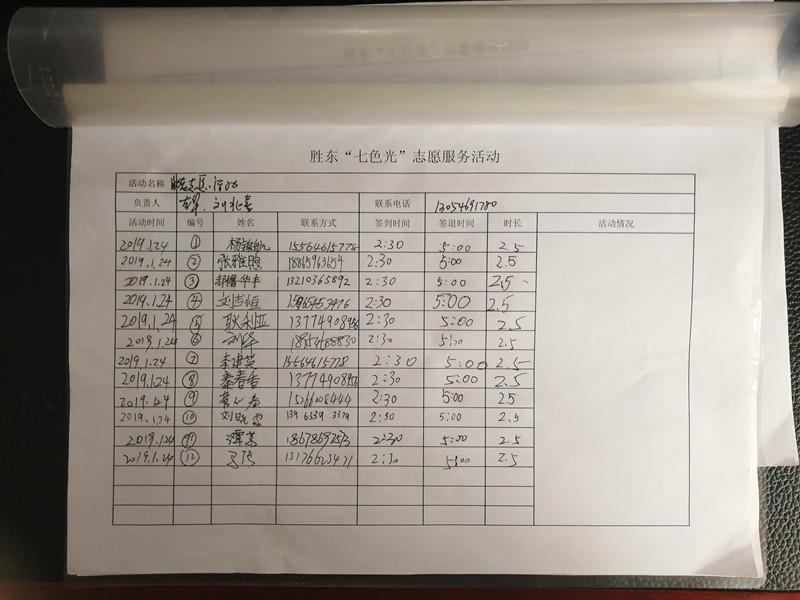 胜东“七色光”志愿服务活动
活动名称
负责人 联系电话 13054691780
活动时间 编号 姓名 联系方式 签到时间 签退时间 时长 活动情况
2019.1.24 ① 15564615778 2:30 5:00 2.5
2019.1.24 ② 张雅煦 18865963654 2:30 5:00 2.5
2019.1.24 ③ 13210365892 2:30 5:00 2.5
2019.1.24 ④ 刘吉恒 2:30 5:00 2.5
2019.1.24 ⑤ 耿利亚 2:30 5:00 2.5
2019.1.24 ⑥ 2:30 5:00 2.5
2019.1.24 ⑦ 李建英 15564615778 2:30 5:00 2.5
2019.1.24 ⑧ 秦春香 2:30 5:00 2.5
⑨ 2:30 5:00 2.5
2019.1.24 ⑩ 刘晓霞 139 6339 3379 2:30 5:00 2.5
2019.1.24 ⑪ 2:30 5:00 2.5
2019.1.24 ⑫ 2:30 5:00 2.5